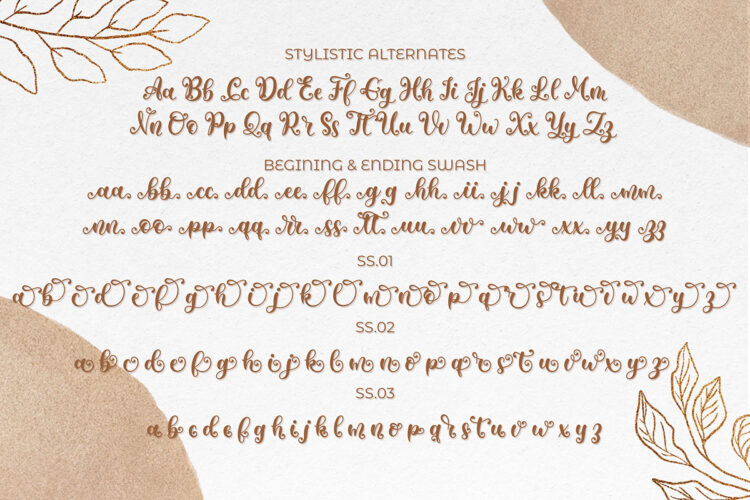 STYLISTIC ALTERNATES
Aa Bb Cc Dd Ee Ff Gg Hh Ii Jj Kk Ll Mm
Nn Oo Pp Qq Rr Ss Tt Uu Vv Ww Xx Yy Zz
BEGINING & ENDING SWASH
aa bb cc dd ee ff gg hh ii jj kk ll mm
nn oo pp qq rr ss tt uu vv ww xx yy zz
SS.01
a b c d e f g h i j k l m n o p q r s t u v w x y z
SS.02
a b c d e f g h i j k l m n o p q r s t u v w x y z
SS.03
a b c d e f g h i j k l m n o p q r s t u v w x y z